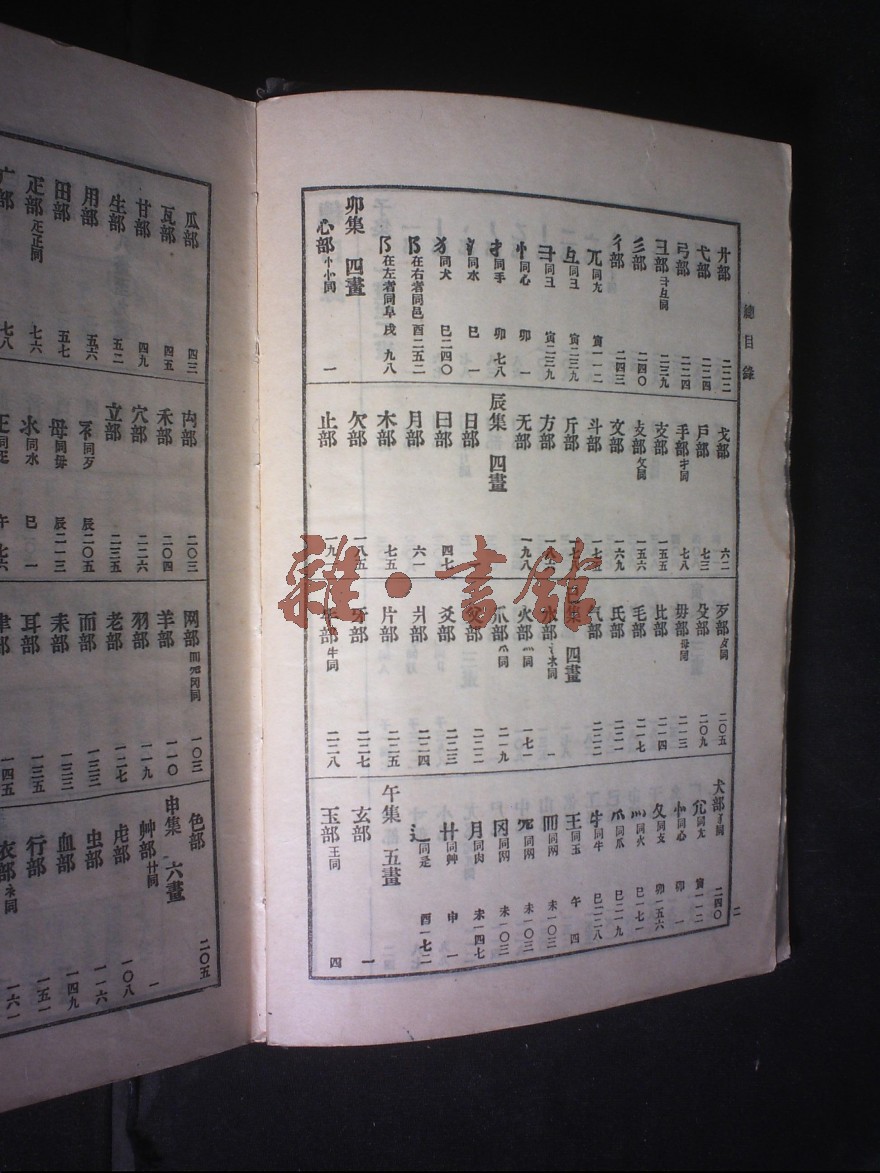 總目錄
廾部 二二二
弋部 二二四
弓部 二二四
彐部 彑彐同 二三九
彡部 二四〇
彳部 二四三
兀同尢 寅一一二
彑同彐 寅二三九
彐同彐 寅二三九
忄同心 卯一
扌同手 卯七八
氵同水 巳一
犭同犬 巳二四〇
阝在右者同邑 酉二五二
阝在左者同阜 戌九八
卯集 四畫
心部 忄㣺同 一
戈部 六二
戶部 七三
手部 扌同 七八
支部 一五五
攴部 攵同 一五六
文部 一六九
斗部
斤部
方部
无部 一九八
辰集 四畫
日部
曰部 四七
月部 六一
木部 七五
欠部 一八五
止部
歹部 歺同 二〇五
殳部 二〇九
毋部 母同 二一三
比部 二一四
毛部 二一七
氏部 二二一
气部 二二二
巳集 四畫
水部 氵氺同 一
火部 灬同 一七一
爪部 爫同 二一九
父部 二二二
爻部 二二三
爿部 二二四
片部 二二五
牙部 二二七
牛部 牜同 二二八
犬部 犭同 二四〇
尣同尢 寅一一二
㣺同心 卯一
攵同攴 卯一五六
灬同火 巳一七一
爫同爪 巳二一九
牜同牛 巳二二八
王同玉 午四
罒同网 未一〇三
㓁同网 未一〇三
冈同网 未一〇三
月同肉 未一四七
卄同艸 申一
辶同辵 酉一七二
午集 五畫
玄部 一
玉部 王同 四
二
瓜部 四三
瓦部 四五
甘部 四九
生部 五二
用部 五六
田部 五七
疋部 𤴔正同 七六
疒部 七八
禸部 二〇三
禾部 二〇四
穴部 二二六
立部 二三五
歺同歹 辰二〇五
母同毋 辰二一三
氺同水 巳一
疋 午七六
网部 罒㓁冈同 一〇三
羊部 一一〇
羽部 一一九
老部 一二七
而部 一三二
耒部 一三三
耳部 一三五
聿部 一四五
色部 二〇五
申集 六畫
艸部 卄同 一
虍部 一〇八
虫部 一一六
血部 一四九
行部 一五一
衣部 衤同 一六一
雜·書館